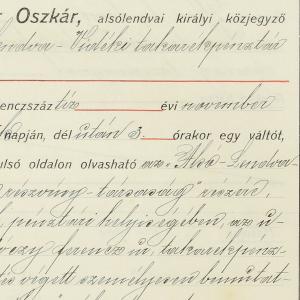 r Oszkár, alsólendvai királyi közjegyző
Lendva-Vidéki takarékpénztár
enczszáz tíz évi november
napján, dél után 3. órakor egy váltót,
ulsó oldalon olvasható az „Alsó-Lendva-
részvény-társaság" részére,
pénztári helyiségében, az u
Ferencz úr, takarékpénz-
végett személyesen bemutat-